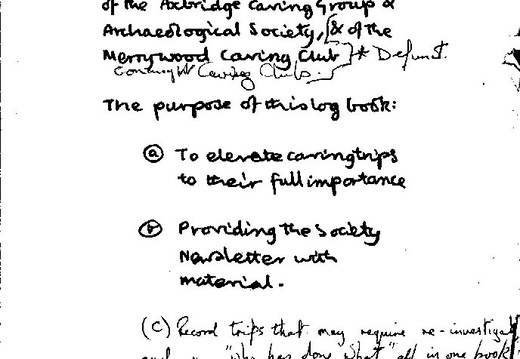 of the Axbridge Caving Group &
Archaeological Society, [& of the
Merrywood Caving Club] * Defunct.
Caving Clubs.
The purpose of this log book:
(a) To elevate caving trips
to their full importance
(b) Providing the Society
Newsletter with
material.
(C) Record trips that may require re-investigat
"who has done what" all in one book